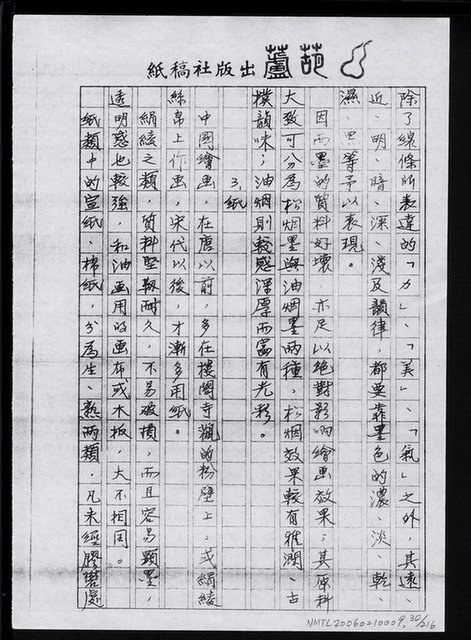 紙稿社版出蘆葩
除了線條所表達的「力」、「美」、「氣」之外，其遠
近、明、暗、深、淺及韻律，都要靠墨色的濃、淡、乾、
濕、黑等予以表現。
因而墨的質料好壞，亦足以絕對影响繪畫效果；其原料
大致可分為松烟墨與油烟墨兩種，松烟效果較有雅潤、古
樸韻味；油烟則較感渾厚而富有光彩。
3.紙
中國繪画，在唐以前，多在樓閣寺觀的粉壁上，或絹綾
絲帛上作画，宋代以後，才漸多用紙。
絹綾之類，質料堅靱耐久，不易破損，而且容易顯墨，
透明感也較強，和油画用的画布或木板，大不相同。
紙類中的宣紙、棉紙，分為生、熟兩類，凡未經膠礬處
NMTL20060210009. 30/216